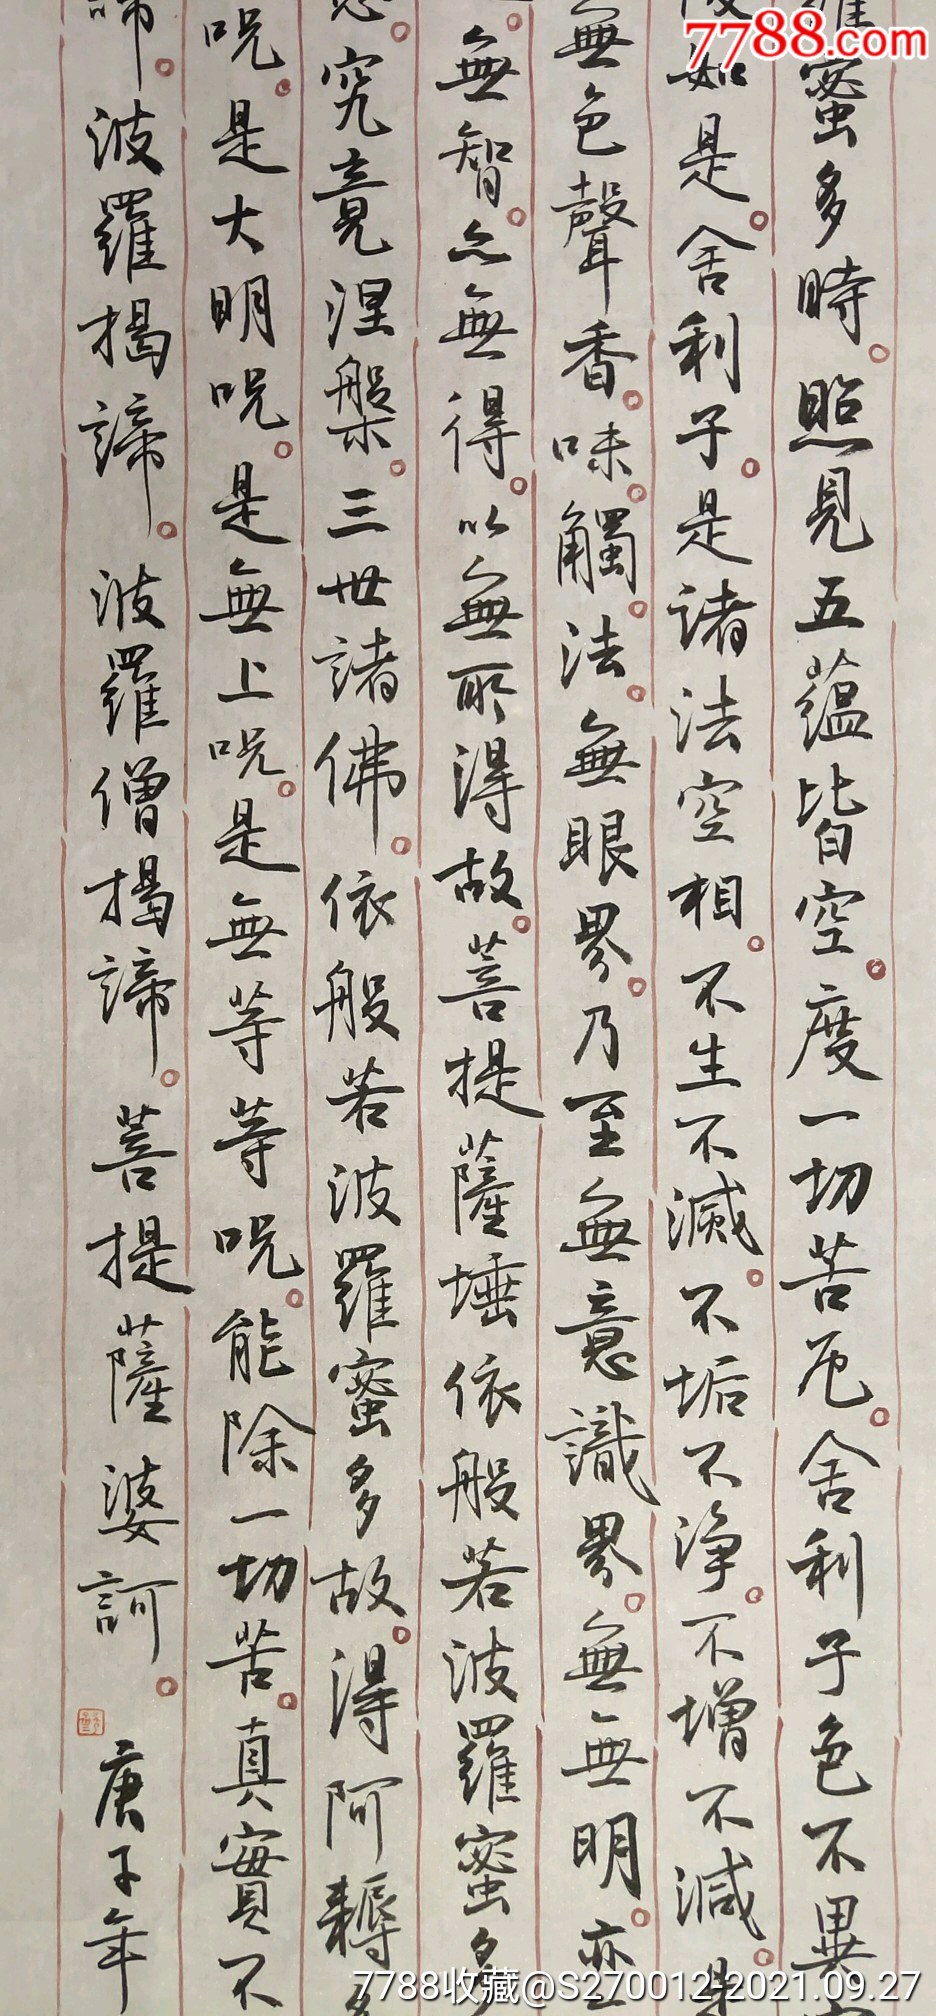 7788.com
蜜多時。照見五蘊皆空。度一切苦厄。舍利子色不異
如是。舍利子。是諸法空相。不生不滅。不垢不淨。不增不減。是
無色聲香。味。觸。法。無眼界。乃至無意識界。無無明。亦
無智。亦無得。以無所得故。菩提薩埵依般若波羅蜜多
究竟涅槃。三世諸佛。依般若波羅蜜多故。得阿耨多
呪。是大明呪。是無上呪。是無等等呪。能除一切苦。真實不
諦。波羅揭諦。波羅僧揭諦。菩提薩婆訶。庚子年
7788收藏@S270012-2021.09.27